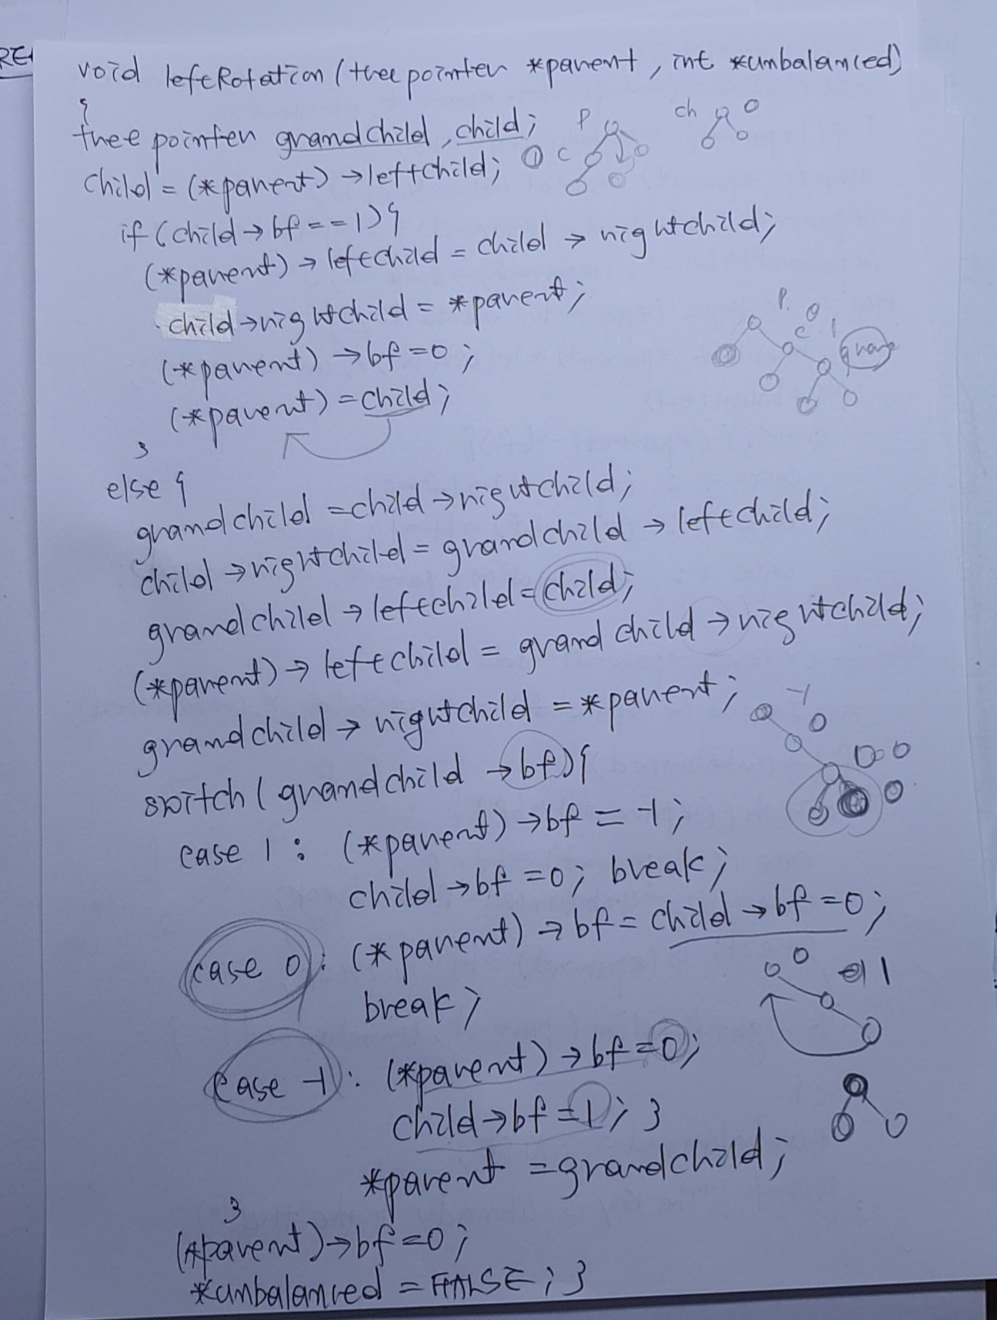 RE
void leftRotation (tree pointer *parent, int *unbalanced)
{
tree pointer grandchild, child;
P
ch
0
child = (*parent) → leftchild;
① c
if (child → bf == 1) {
(*parent) → leftchild = child → rightchild;
child → rightchild = *parent;
P. 0
c 1
grand
(*parent) → bf = 0;
(*parent) = child;
}
else {
grandchild = child → rightchild;
child → rightchild = grandchild → leftchild;
grandchild → leftchild = child;
(*parent) → leftchild = grandchild → rightchild;
grandchild → rightchild = *parent;
-1
0
switch (grandchild → bf) {
case 1 : (*parent) → bf = -1;
child → bf = 0; break;
case 0 : (*parent) → bf = child → bf = 0;
break;
0
1
case -1 : (*parent) → bf = 0;
child → bf = 1; }
*parent = grandchild;
}
(*parent) → bf = 0;
*unbalanced = FALSE; }